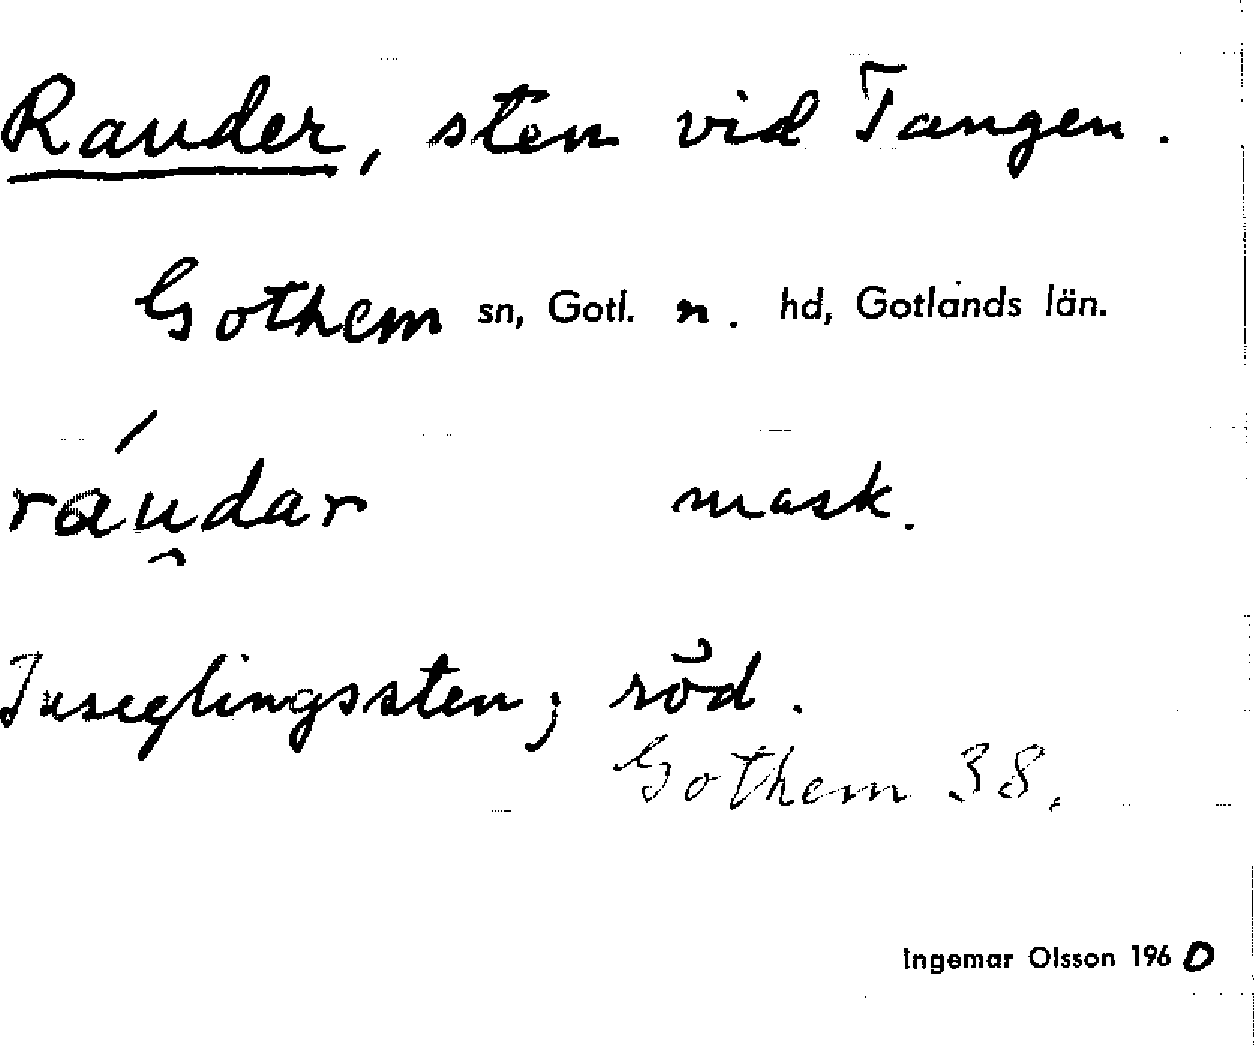 Rauder, sten vid Tangen.
Gothem sn, Gotl. n. hd, Gotlands län.
ráu̯dar mask.
Inseglingssten, röd.
Gothem 38.
Ingemar Olsson 1960